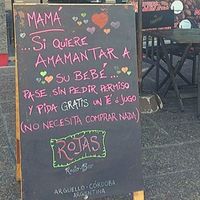 MAMÁ
...SI QUIERE
AMAMANTAR A
SU BEBÉ...
PASE SIN PEDIR PERMISO
Y PIDA GRATIS UN TÉ ó JUGO
(NO NECESITA COMPRAR NADA)
ROJAS
Resto-Bar
ARGÜELLO-CÓRDOBA
ARGENTINA